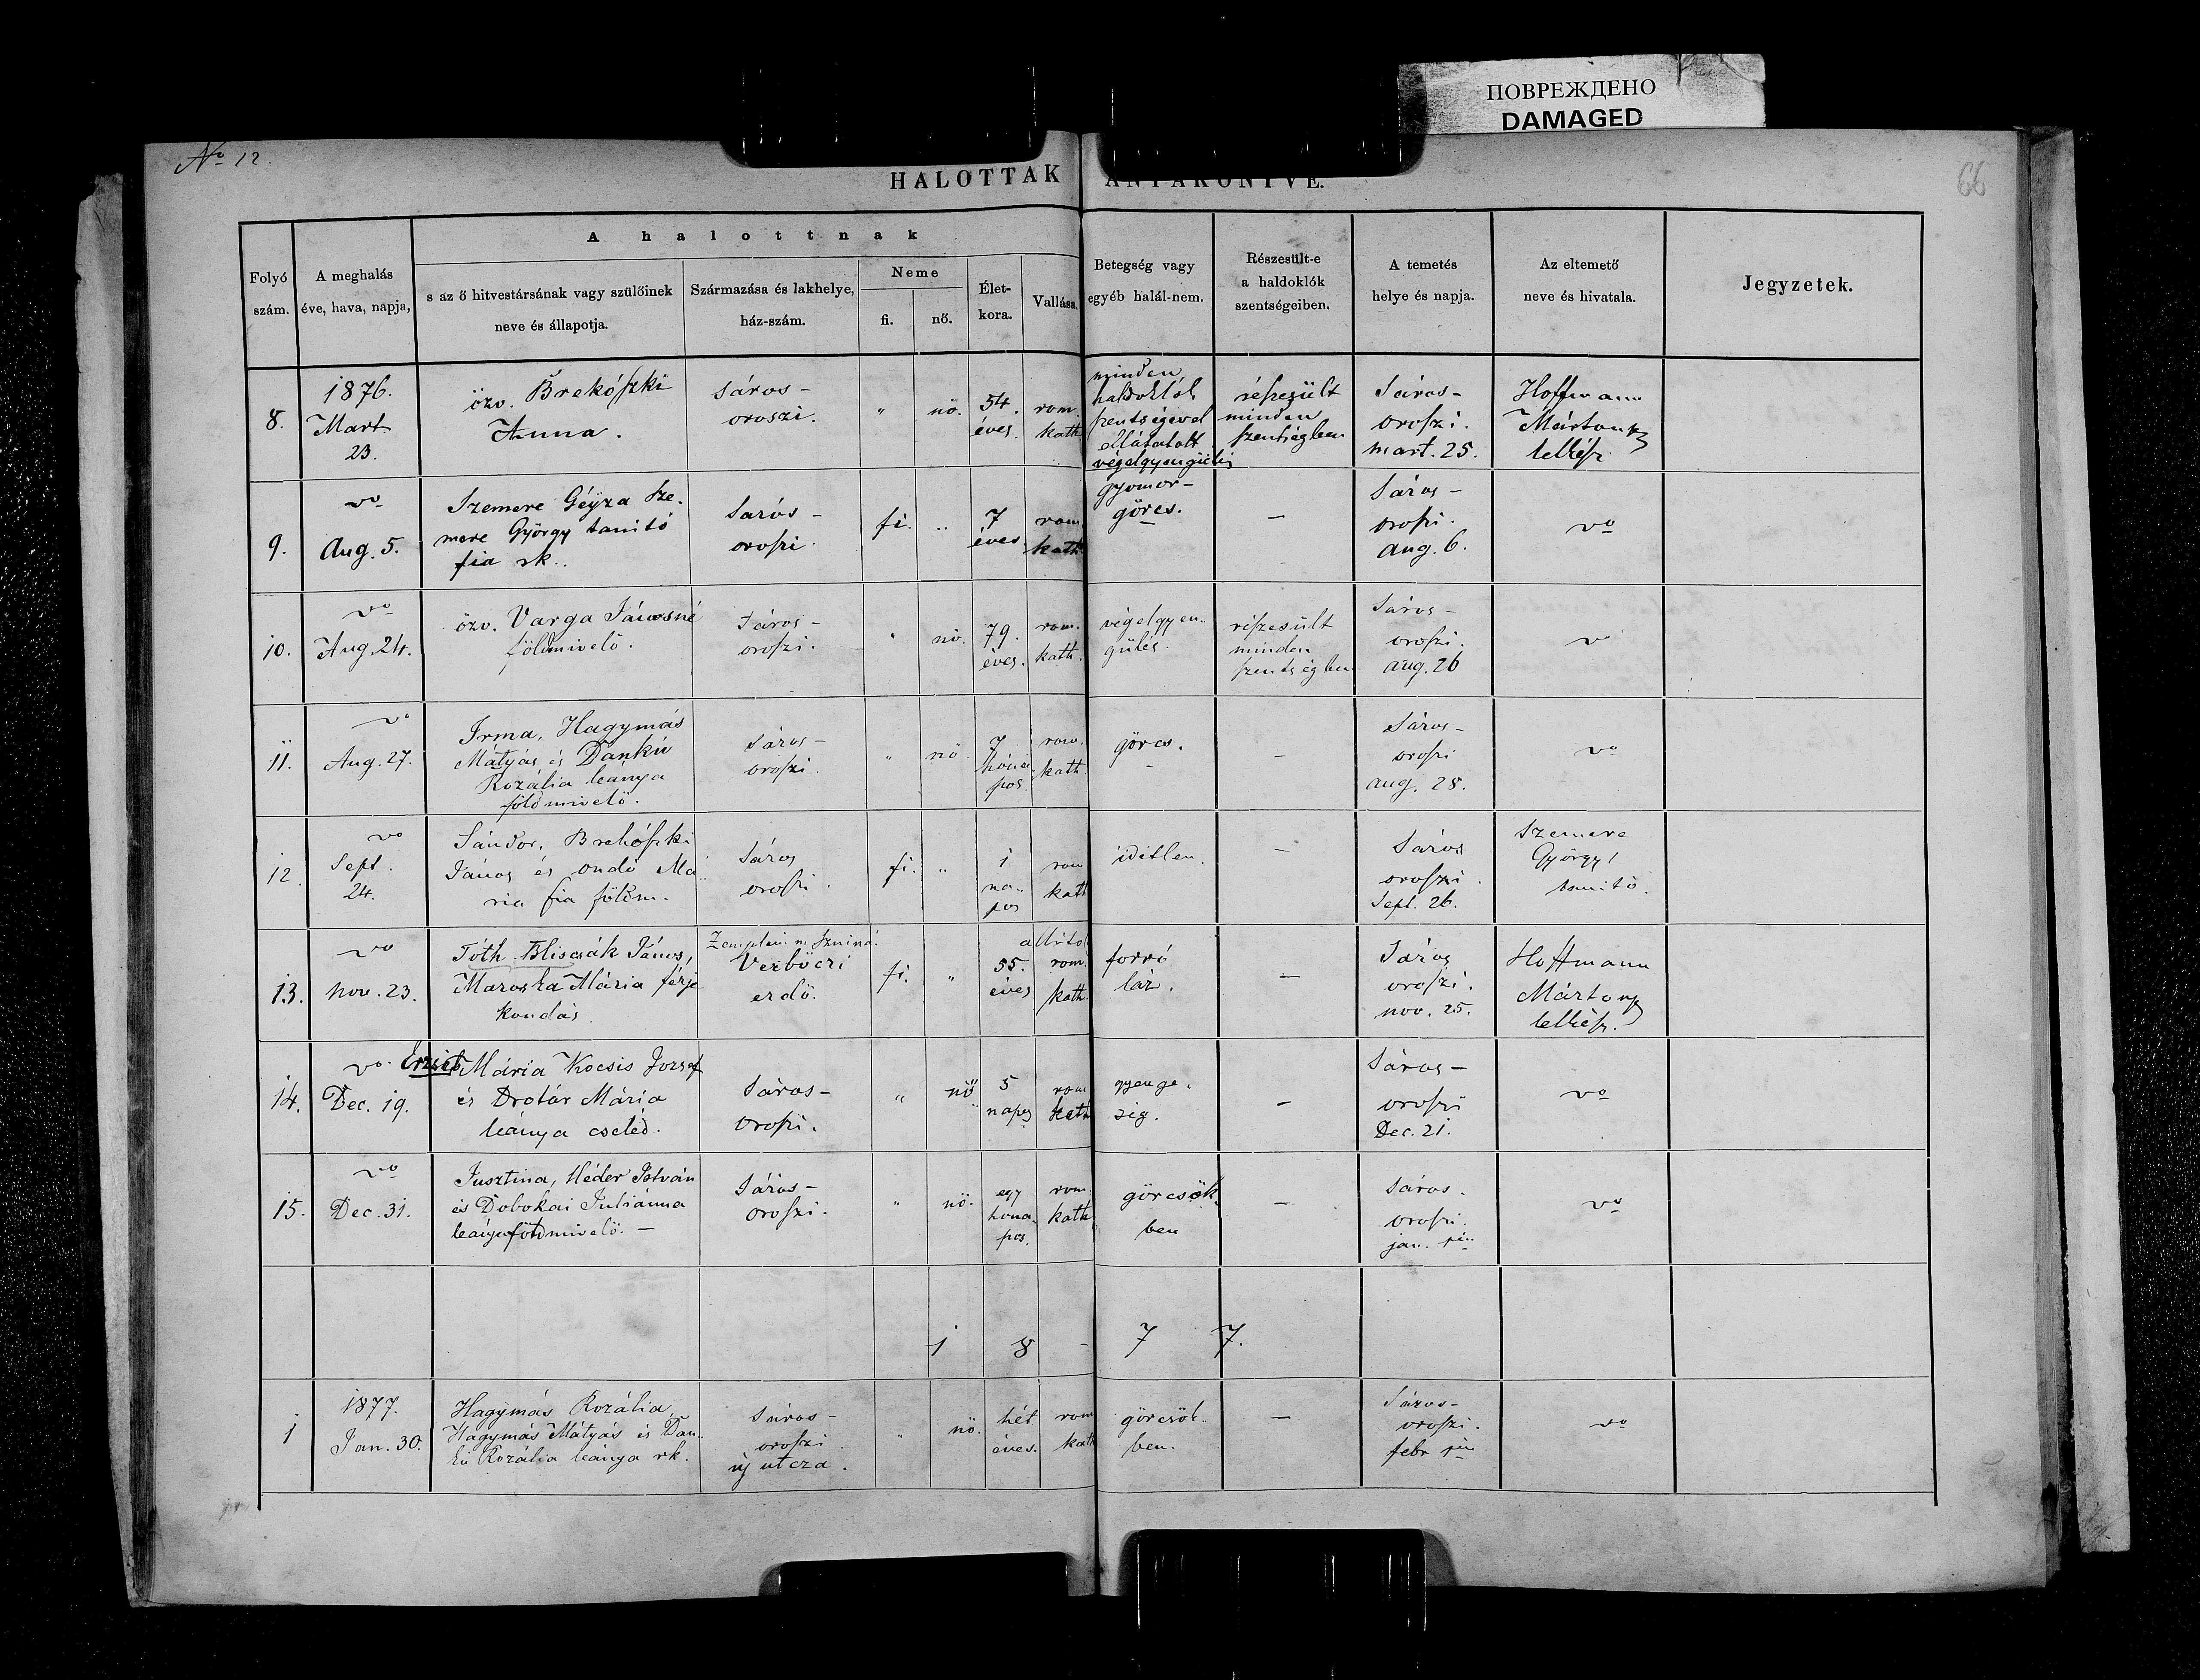 ПОВРЕЖДЕНО
DAMAGED
No 12.
66
HALOTTAK ANYAKÖNYVE.
Folyó szám.
A meghalás éve, hava, napja,
A halottnak
s az ő hitvestársának vagy szülőinek neve és állapotja.
Származása és lakhelye, ház-szám.
Neme
fi.
nő.
Élet-kora.
Vallása.
Betegség vagy egyéb halál-nem.
Részesült-e a haldoklók szentségeiben.
A temetés helye és napja.
Az eltemető neve és hivatala.
Jegyzetek.
8.
1876.
Mart
23.
özv. Brekószki
Anna.
Sáros-
oroszi.
"
nö.
54.
éves.
rom.
kath
minden
haldoklók
szentségével
ellátatott
végelgyengülés
részesült
minden
szentségben
Sáros-
oroszi.
mart. 25.
Hoffmann
Márton
lelkész
9.
vo
Aug. 5.
Szemere Géyza Sze-
mere György tanitó
fia rk..
Sarós-
oroszi
fi.
"
7
éves.
rom.
kath
gyomor-
görcs.
-
Sáros-
oroszi.
aug. 6.
vo
10.
vo
Aug. 24.
özv. Varga Jánosné
földmivelö.
Sáros-
oroszi.
"
nö.
79.
éves.
rom.
kath.
végelgyen-
gülés.
részesült
minden
szentségben
Sáros-
oroszi.
aug. 26
vo
11.
vo
Aug. 27.
Irma, Hagymás
Mátyás és Dankú
Rozália leánya
földmivelö.
Sáros-
oroszi.
"
nö
7
hóna-
pos.
rom.
kath.
görcs.
-
Sáros-
oroszi
aug. 28.
vo
12.
vo
Sept.
24.
Sándor, Brekószki
János és ondó Má-
ria fia földm.
Sáros
oroszi.
fi.
"
1
na-
pos
rom
kath
idétlen.
-
Sáros
oroszi.
Sept. 26.
Szemere
György
tanitó.
13.
vo
Nov. 23.
Tóth Bliscsák János,
Maroska Mária férje
kondás
Zemplén m. Sznina.
Verböczi
erdö.
fi.
"
55.
éves
rom.
kath.
forró
láz.
-
Sáros
oroszi.
nov. 25.
Hoffmann
Márton
lelkész.
14.
vo
Dec. 19.
Erzséb Mária Kocsis Jozsef
és Drotár Mária
leánya cseléd.
Sáros-
oroszi.
"
nö
5
napos
rom
kath
gyenge-
ség.
-
Sáros-
oroszi
Dec. 21.
vo
15.
vo
Dec. 31.
Jusztina, Héder István
és Dobokai Juliánna
leánya földmivelö. -
Sáros-
oroszi.
"
nö.
egy
hóna-
pos.
rom.
kath
görcsök
ben
-
Sáros.
oroszi.
jan.
vo
"
1
8
-
7
7.
1
1877.
Jan. 30.
Hagymás Rozália,
Hagymás Mátyás és Dan-
kú Rozália leánya rk.
Sáros-
oroszi
új utcza.
"
nö.
hét
éves.
rom
kath
görcsök-
ben.
-
Sáros-
oroszi.
febr
vo